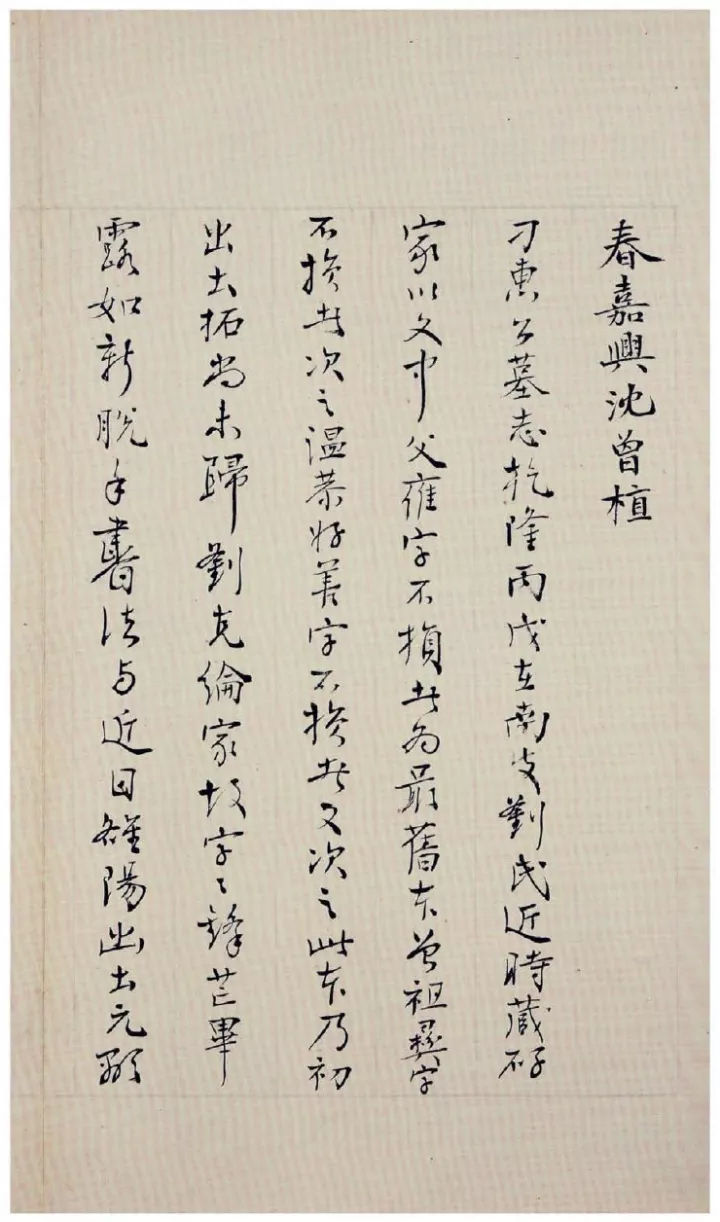 春嘉興沈曾植
刁惠公墓志乾隆丙戌在南皮劉氏近時藏碑
家以文中父雍字不損者為最舊本曾祖彝字
不損者次之温恭好善字不損者又次之此本乃初
出土拓尚未歸劉克綸家故字々鋒芒畢
露如新脫手書法与近日雒陽出土元顯